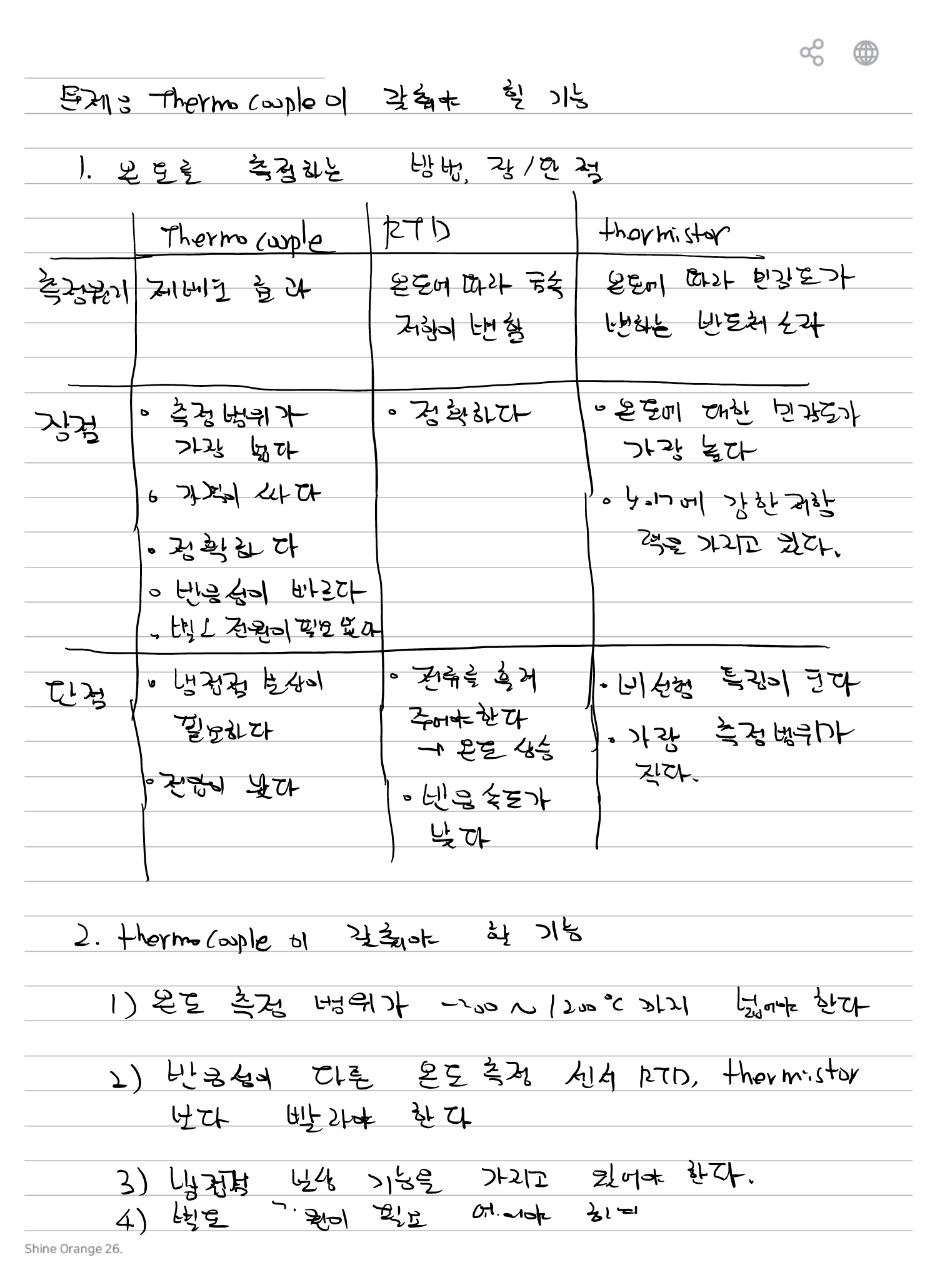 문제: Thermocouple이 갖춰야 할 기능
1. 온도를 측정하는 방법, 장/단점
Thermocouple RTD thermistor
측정원리 제베크 효과 온도에 따라 금속 온도에 따라 민감도가
저항이 변함 변하는 반도체 소자
장점 • 측정 범위가 • 정확하다 • 온도에 대한 민감도가
가장 넓다 가장 높다
• 가격이 싸다 • 노이즈에 강한 저항
• 정확하다 력을 가지고 있다.
• 반응성이 빠르다
• 별도 전원이 필요없다
단점 • 냉접점 보상이 • 전류를 흘려 • 비선형 특징이 크다
필요하다 주어야 한다 • 가장 측정범위가
→ 온도 상승 작다.
• 전압이 낮다 • 반응속도가
낮다
2. thermocouple이 갖춰야 할 기능
1) 온도 측정 범위가 -200 ~ 1200°C 까지 넓어야 한다
2) 반응성이 다른 온도 측정 센서 RTD, thermistor
보다 빨라야 한다
3) 냉접점 보상 기능을 가지고 있어야 한다.
4) 별도 필요
Shine Orange 26.